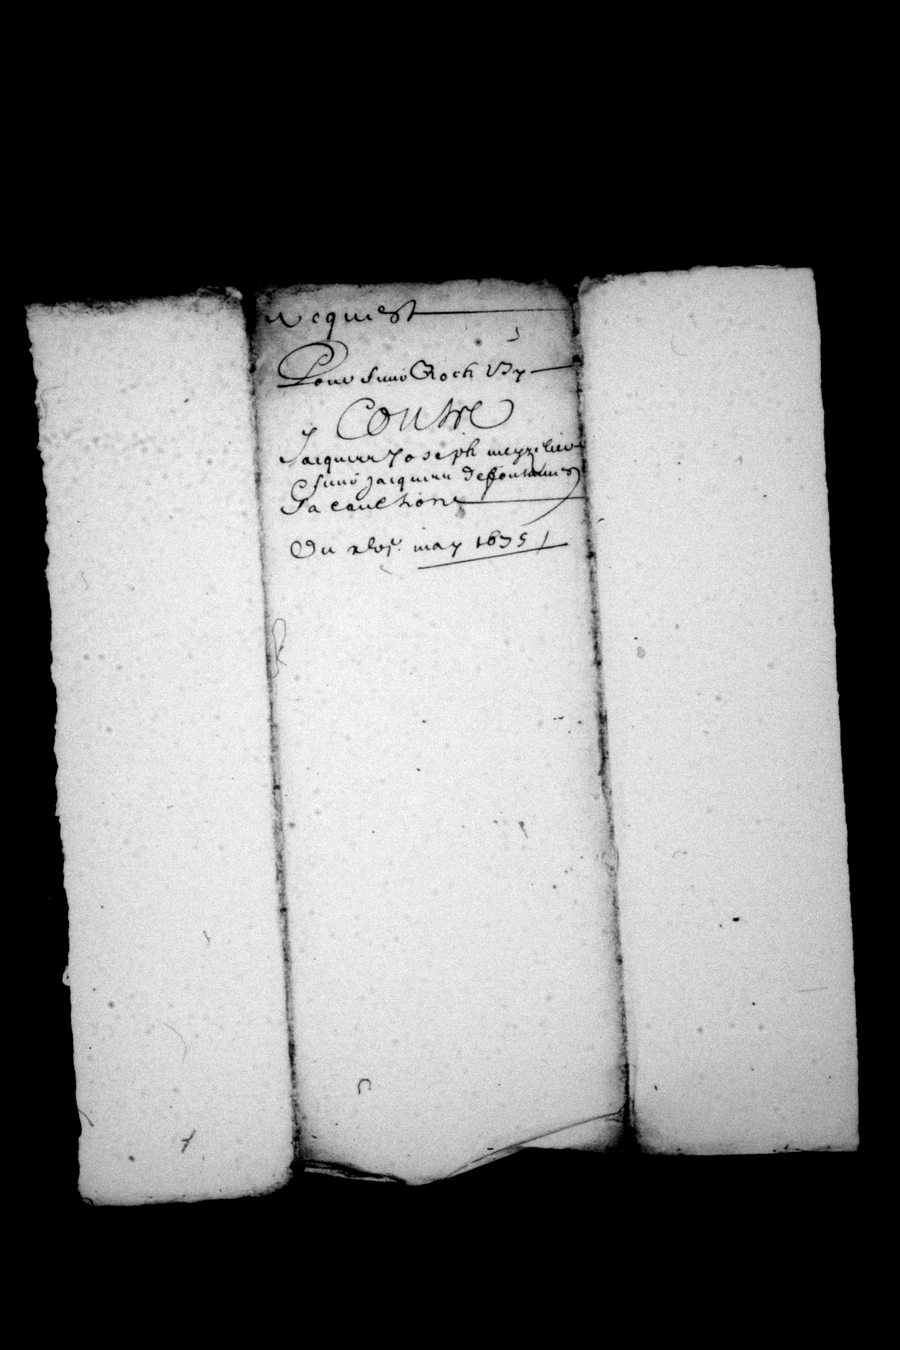 Requeste
Pour Sieur Roch Vy
Contre
Jacques Joseph meyzelier
Sieur Jacques Desfontaines
Sa caution
Du may 1675